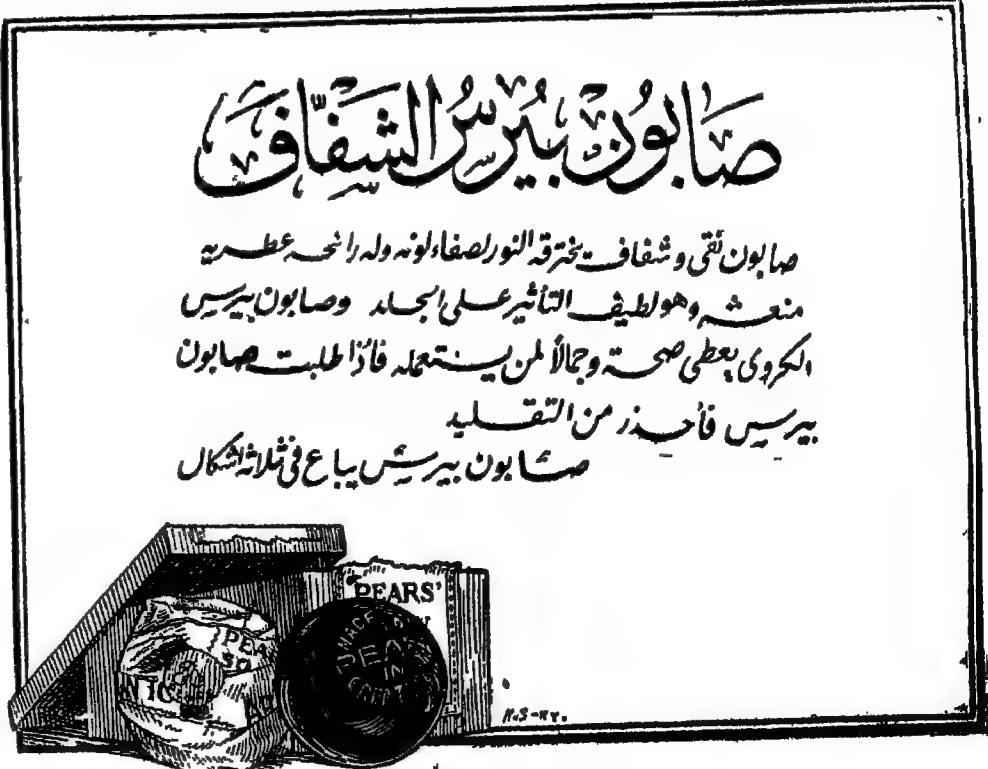 صَابُون بيُرسُ الشَفَّافَ
صابون نقى وشفاف يخترقه النور لصفاء لونه وله رائحه عطريه
منعشه وهو لطيف التأثير على الجلد وصابون بيرس
الكروى يعطى صحة وجمالاً لمن يستعمله فاذا طلبت صابون
بيرس فأحذر من التقليد
صابون بيرس يباع فى ثلاثة اشكال
PEARS'
PEA
SO
PEA